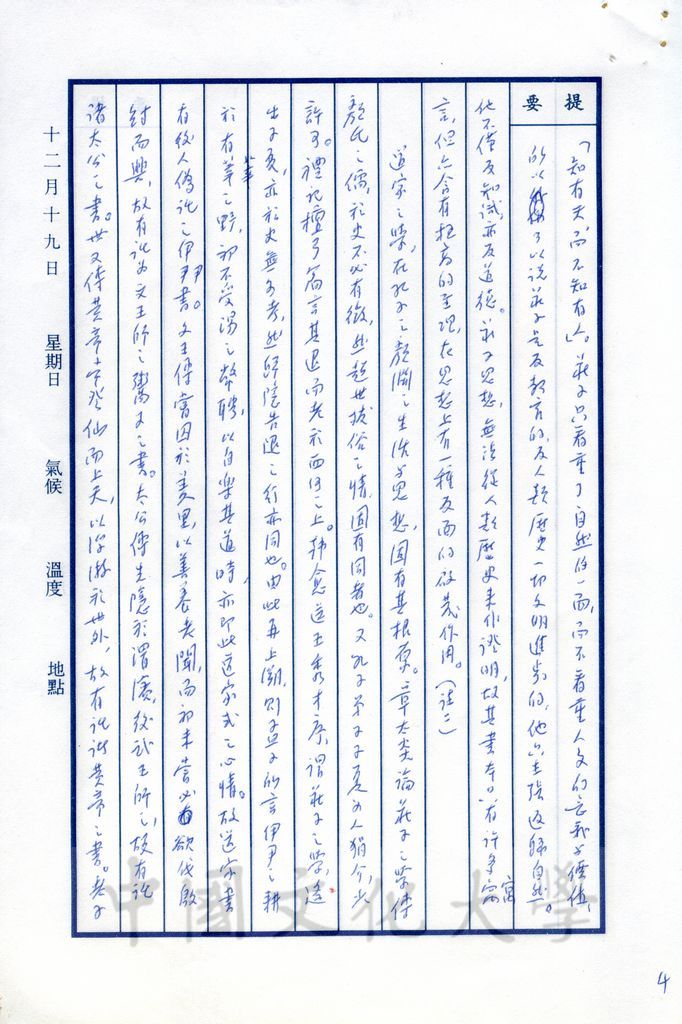 提要
「知有天,而不知有人」。莊子只看重了自然的一面,而不看重人文的意義與價值,
所以可以說莊子是反教育的,反人類歷史一切文明進步的,他只主張返歸自然。
他不僅反知識,亦反道德。莊子思想,無法從人類歷史來作證明,故其書本只有許多寓
言,但亦含有極高的至理,在思想上有一種反面的啟發作用。(註二)
道家之學,在孔子之顏淵之生活與思想,固有其根原。章太炎論莊子之學傳
顏氏之儒,於史不必有徵,然超世拔俗之情,固有同者也。又孔子弟子子夏為人狷介,少
許可。禮記檀弓篇言其退而老於西河之上。韓愈送王秀才序,謂莊子之學,遠
出子夏,亦於史無可考,然歸隱告退之行亦同也。由此再上溯,則孟子所言伊尹之耕
於有莘之野,初不受湯之幣聘,以自樂其道時,亦即此道家式之心情。故道家書
有後人偽託之伊尹書。文王傳嘗囚於羑里,以善養老聞,而初未嘗必欲伐殷
紂而興,故有託為文王師之鬻子之書。太公傳先隱於渭濱,後武王師之,故有託
諸太公之書。世又傳黃帝嘗登仙而上天,以浮游於世外,故有託諸黃帝之書。老子
十二月十九日 星期日 氣候 溫度 地點
4
中國文化大學